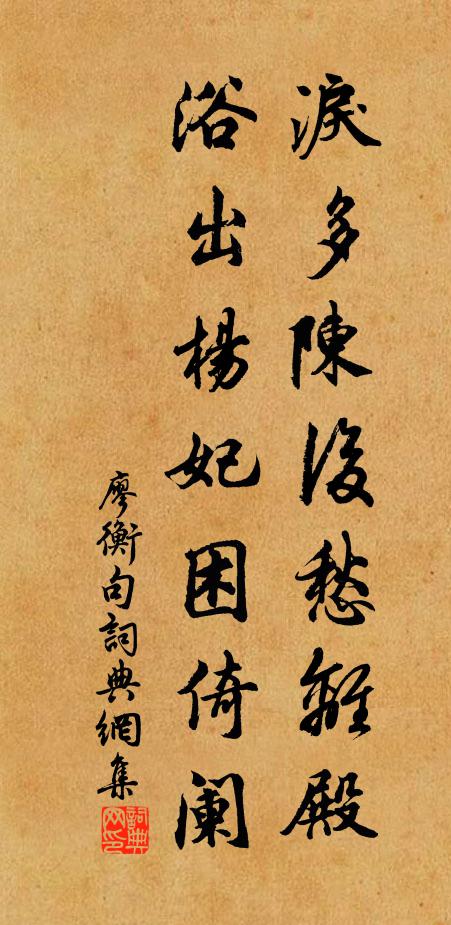 淚多陳後愁離殿
浴出楊妃困倚闌
廖衡句詞典網集
詞典網印